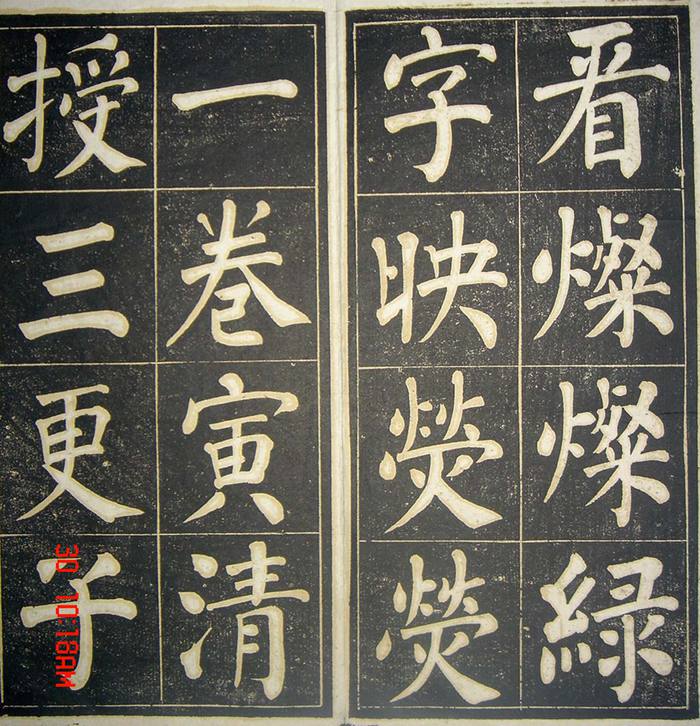 看燦燦緑
字映熒熒
一卷寅清
授三更子
30 10:18AM